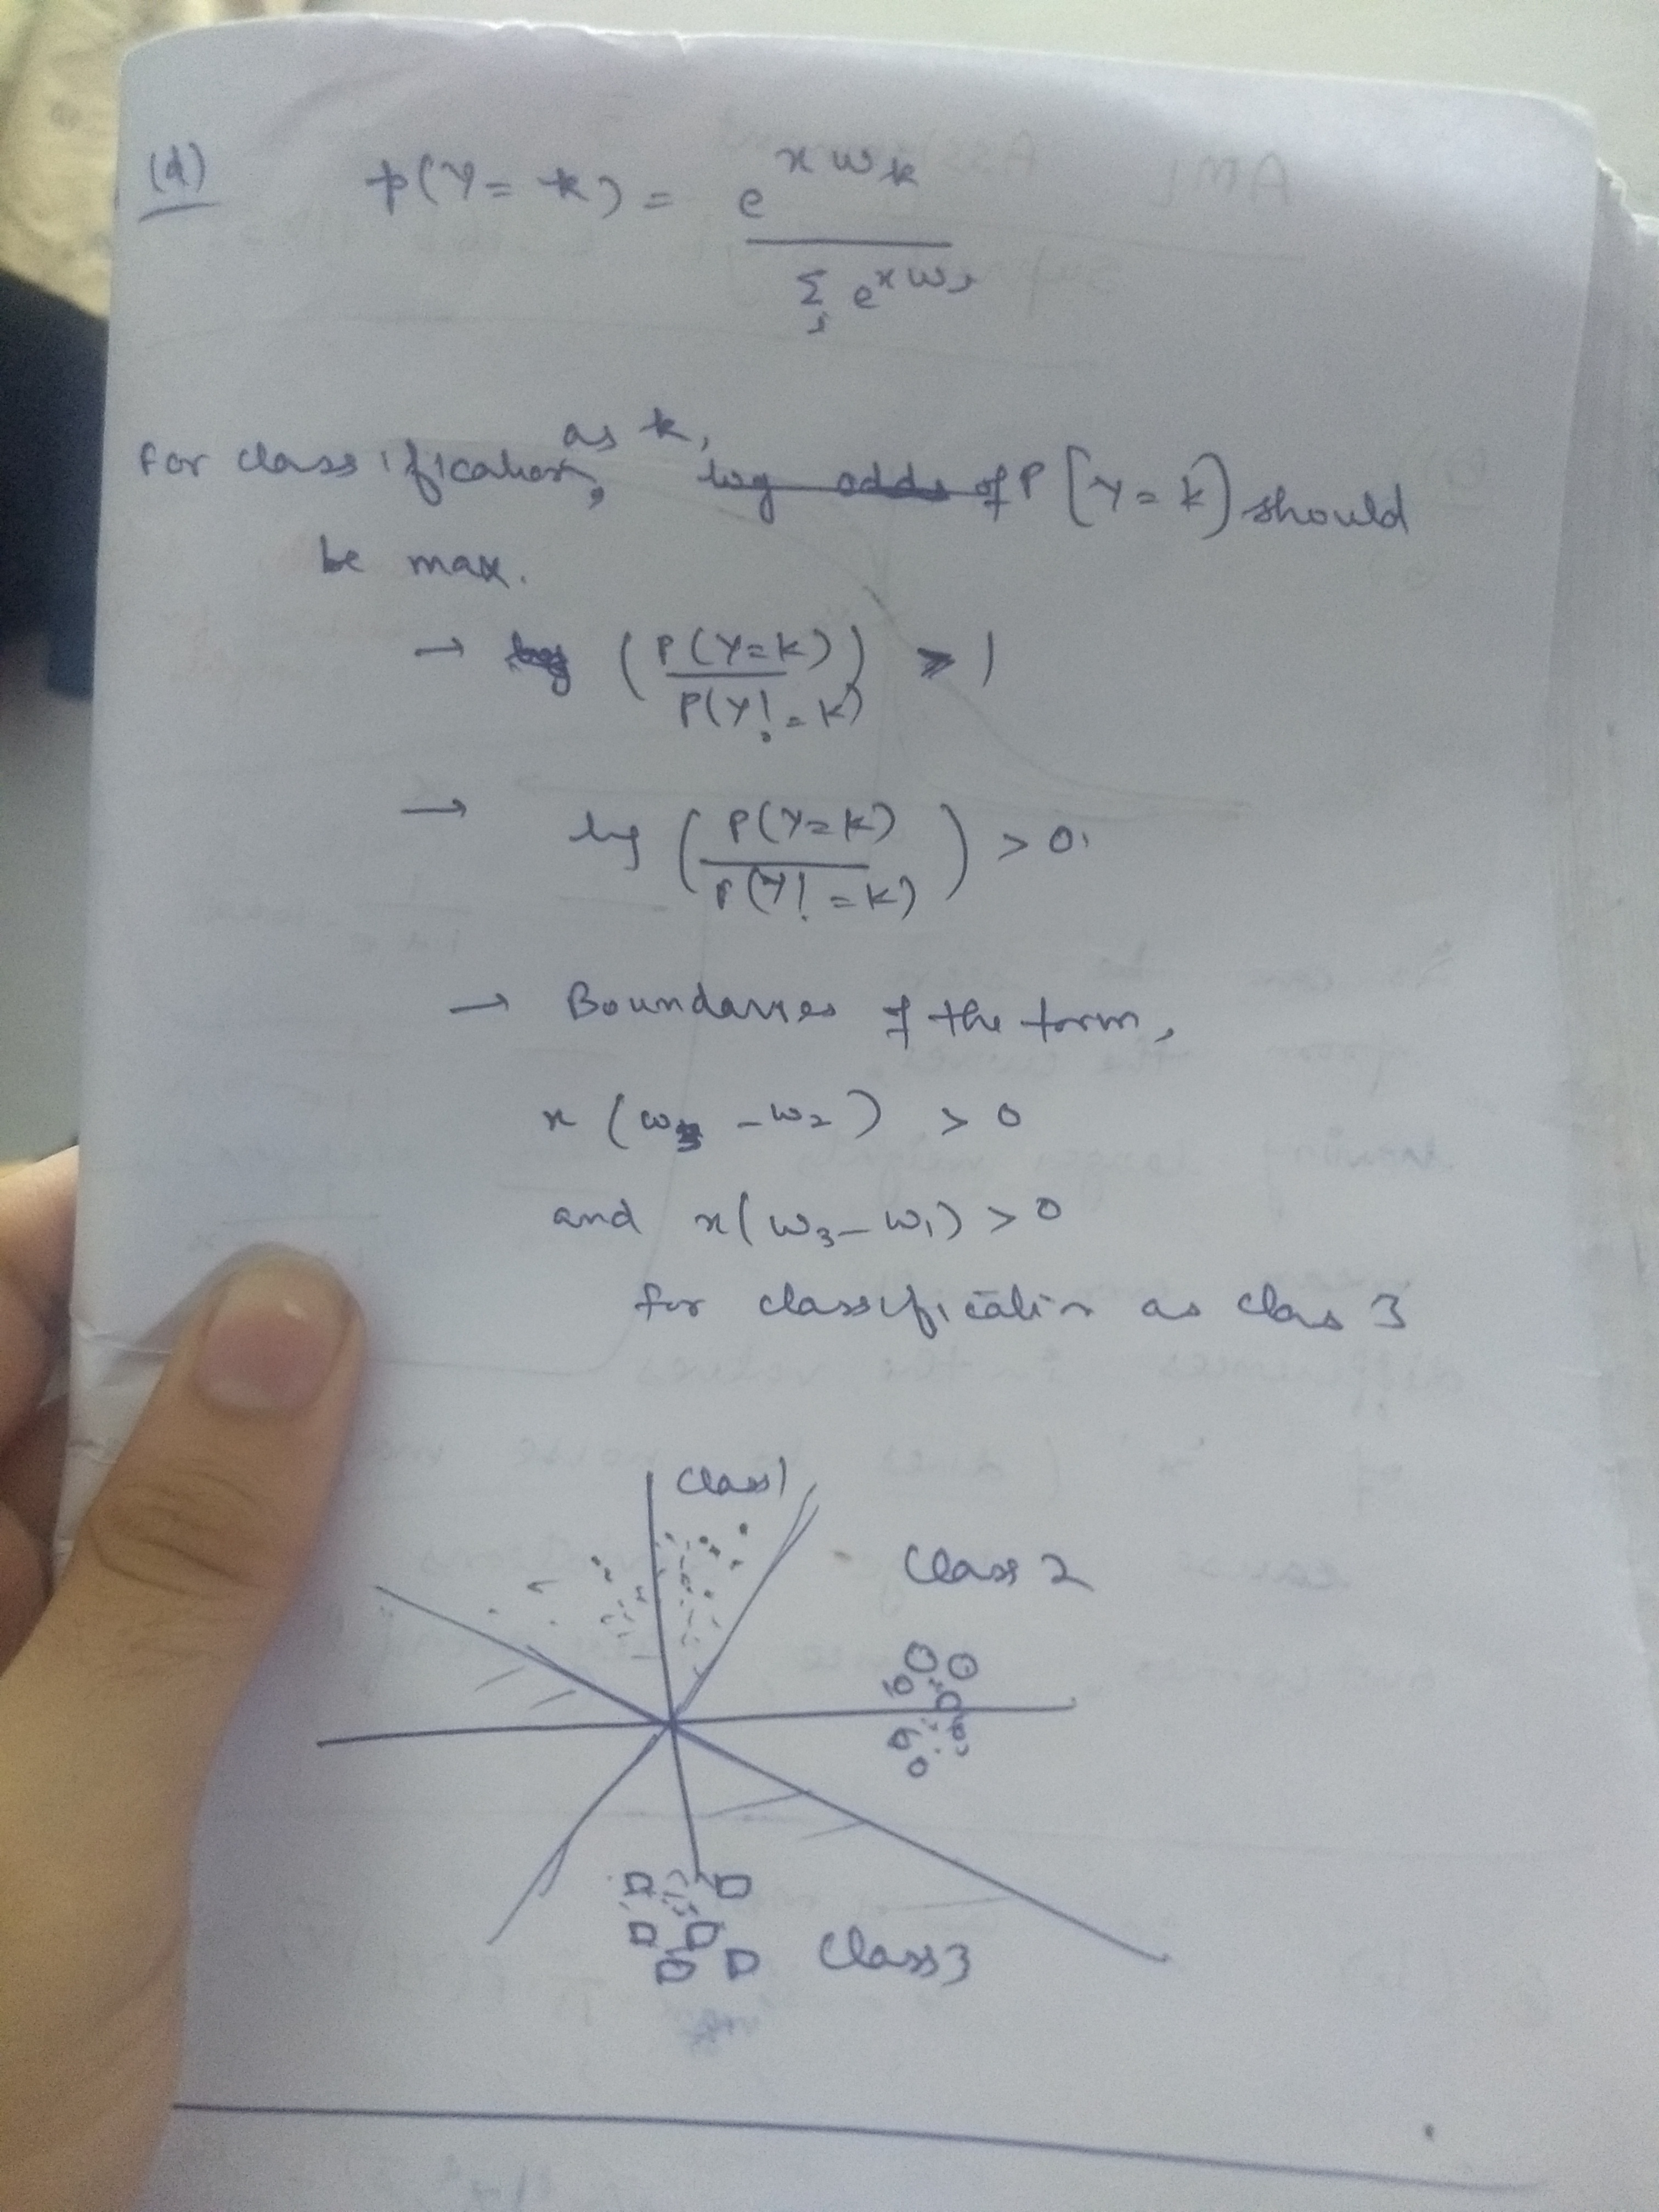 (d) p(Y = k) = e^{x w_k} / Σ_j e^{x w_j}
as k,
For classification, log odds of P[Y = k) should
be max.
→ log (P(Y=k) / P(Y!=k)) > 1
→ log (P(Y=k) / P(Y!=k)) > 0.
→ Boundaries of the form,
x (w_3 - w_2) > 0
and x(w_3 - w_1) > 0
for classification as class 3
Class 1
Class 2
Class 3